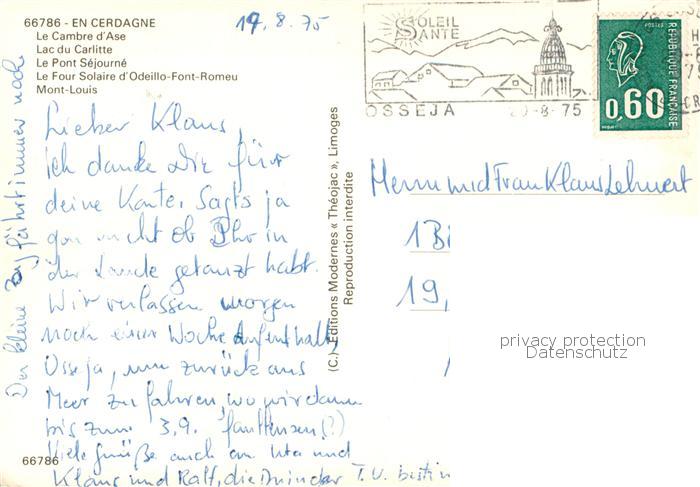 66786 - EN CERDAGNE
Le Cambre d'Ase
Lac du Carlitte
Le Pont Séjourné
Le Four Solaire d'Odeillo-Font-Romeu
Mont-Louis
17.8.75
SOLEIL
SANTE
OSSEJA
20-8-75
POSTES
REPUBLIQUE FRANÇAISE
0,60
Lieber Klaus,
ich danke Dir für
deine Karte. Sagst ja
gar nicht ob Ihr in
der getanzt habt.
Wir verlassen morgen
nach einer Woche Aufenthalt
Osseja, um zurück ans
Meer zu fahren, wo wir dann
bis zum 3.9. (?)
Viele Grüße auch an Uta und
Klaus und Ralf, die T.U.
Der kleine Zug fährt immer noch
(C.) Editions Modernes « Théojac », Limoges
Reproduction interdite
Herrn und Frau Klaus Lehnert
1 B
19,
privacy protection
Datenschutz
66786